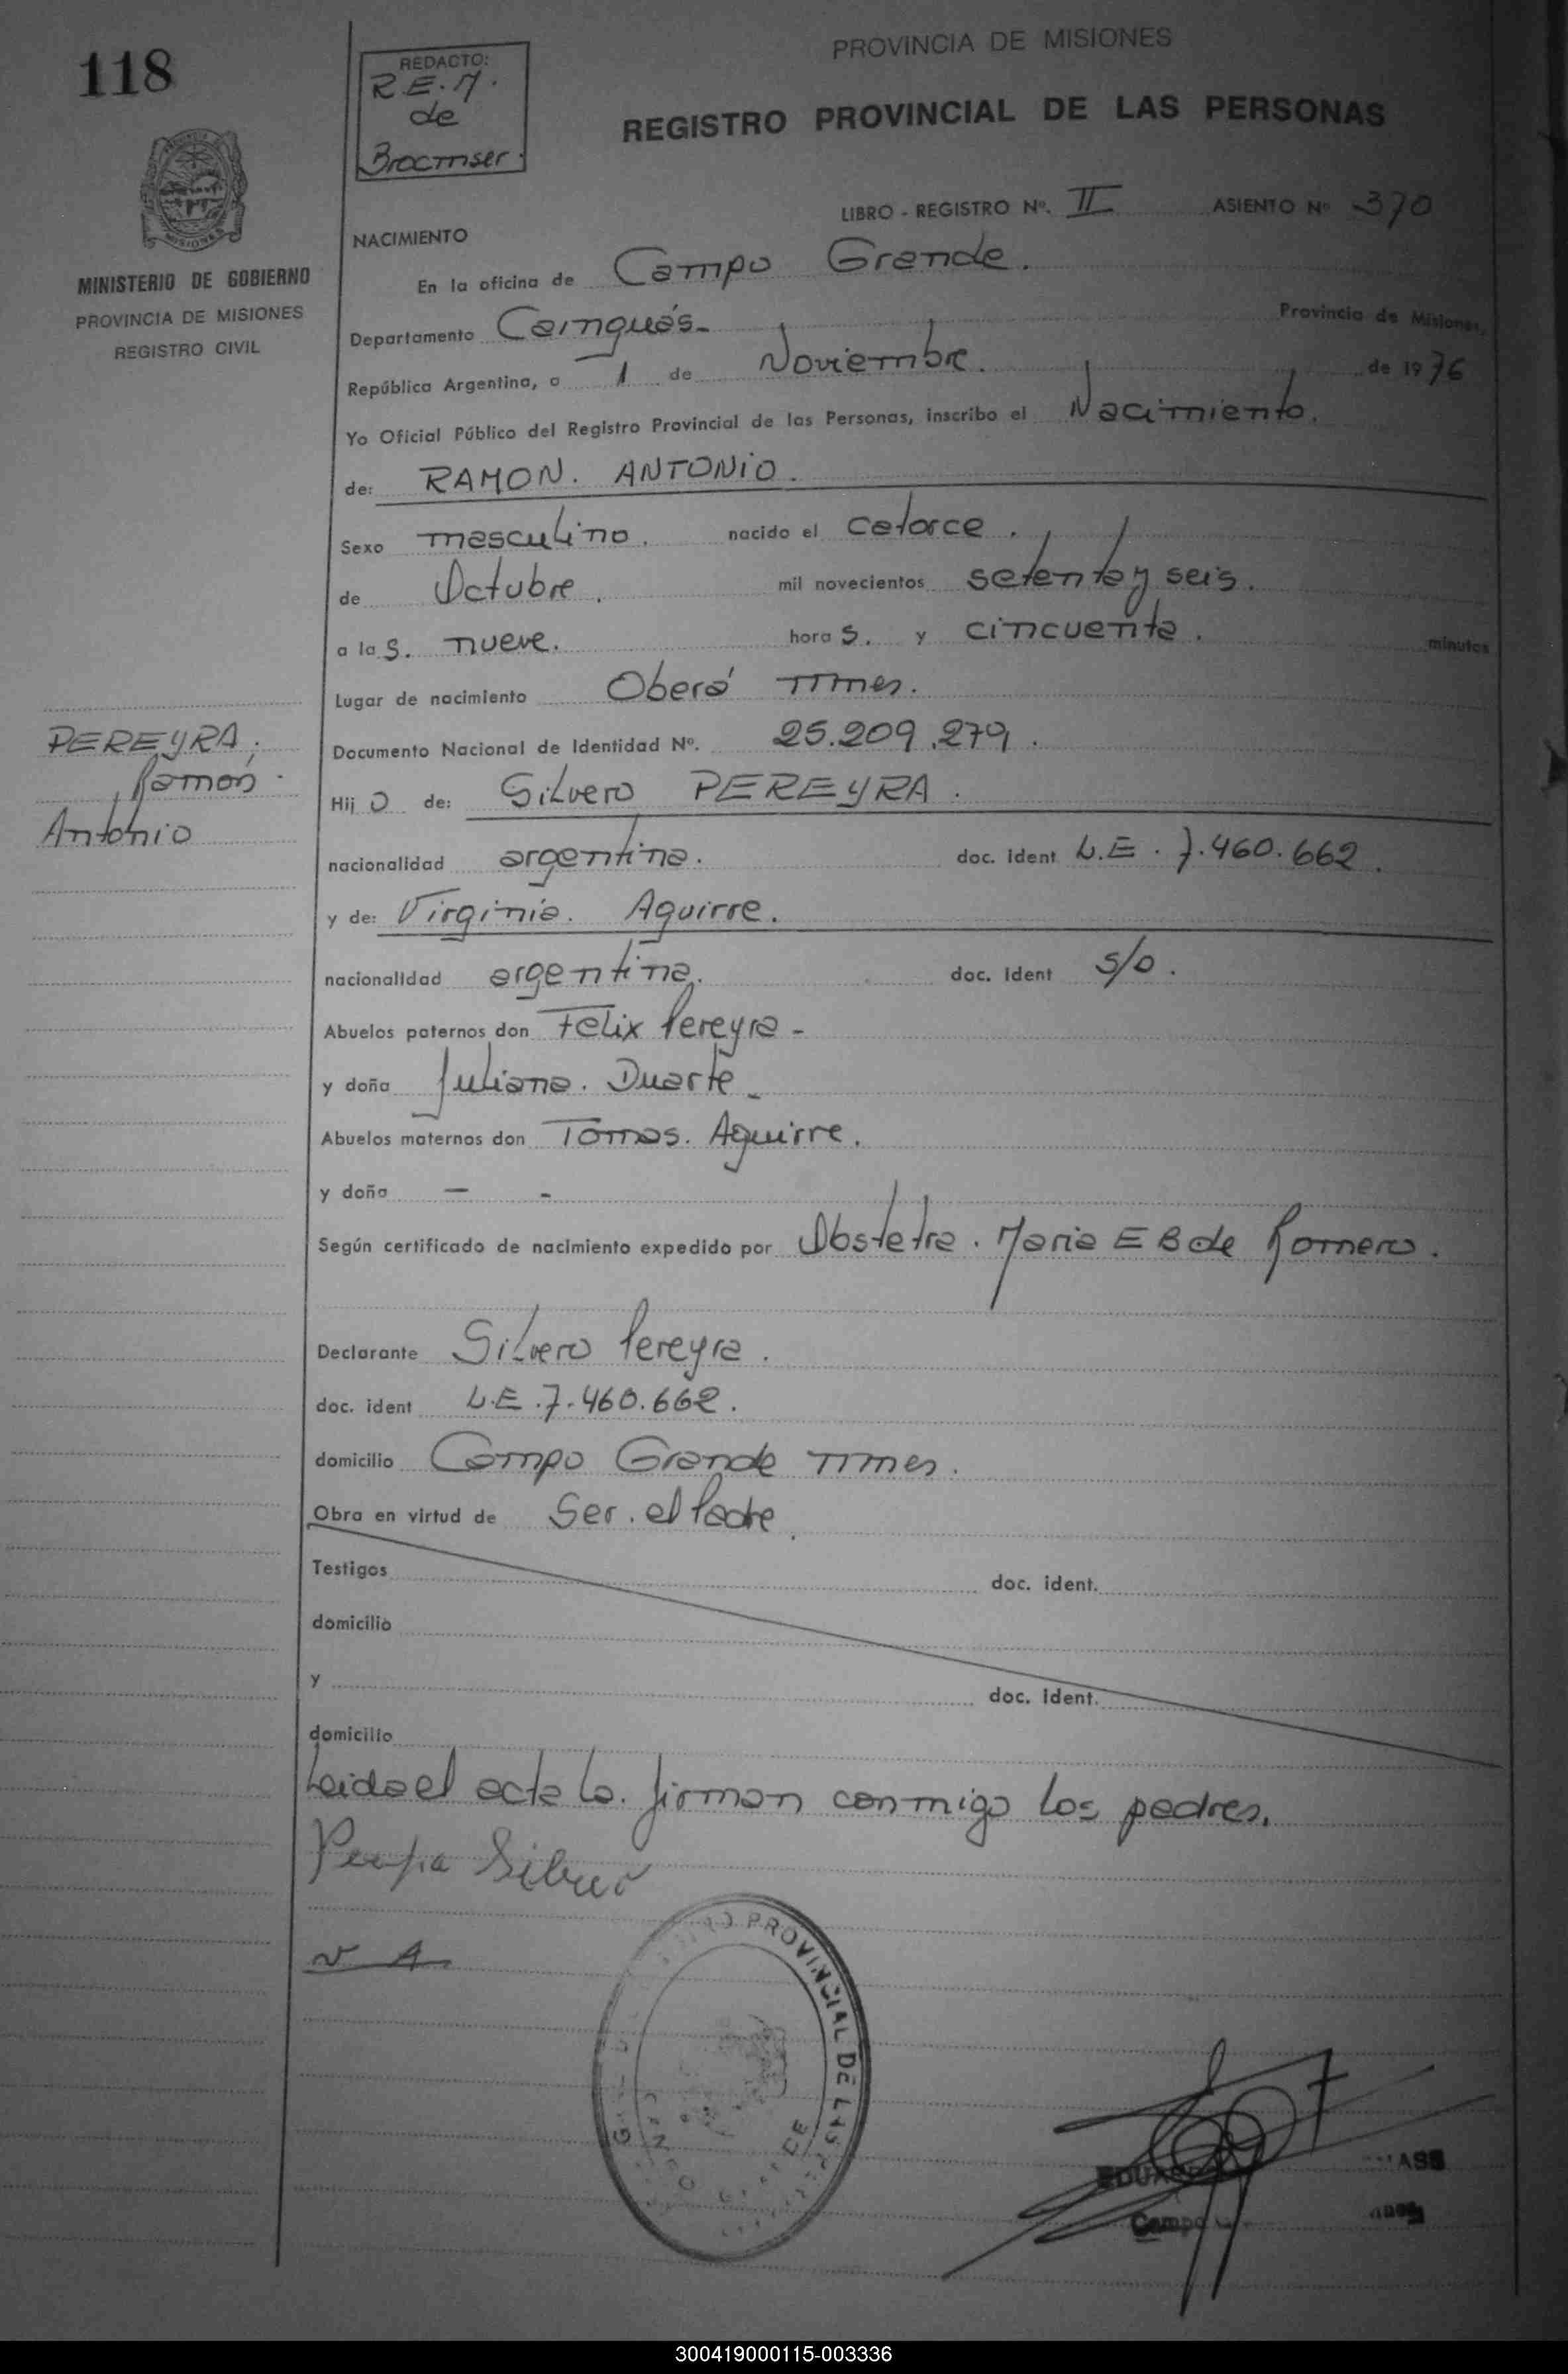 118
REDACTO:
R.E.M.
de
PROVINCIA DE MISIONES
REGISTRO PROVINCIAL DE LAS PERSONAS
MISIONES
MINISTERIO DE GOBIERNO
PROVINCIA DE MISIONES
REGISTRO CIVIL
LIBRO - REGISTRO Nº. II ASIENTO Nº 370
NACIMIENTO
En la oficina de Campo Grande.
Departamento Cainguás - Provincia de Misiones,
República Argentina, a 1 de Noviembre. de 1976
Yo Oficial Público del Registro Provincial de las Personas, inscribo el Nacimiento.
de: RAMON. ANTONIO.
Sexo masculino. nacido el catorce.
de Octubre. mil novecientos setenta y seis.
a las. nueve. horas. y cincuenta. minutos
Lugar de nacimiento Oberá Mnes.
PEREYRA,
Ramón
Antonio
Documento Nacional de Identidad Nº. 25.209.279.
Hijo de: Silvero PEREYRA.
nacionalidad argentina. doc. ident L.E. 7.460.662.
y de: Virginia. Aguirre.
nacionalidad argentina. doc. ident s/d.
Abuelos paternos don Felix Pereyra -
y doña Juliana. Duarte -
Abuelos maternos don Tomas. Aguirre.
y doña - -
Según certificado de nacimiento expedido por Obstetra. Maria E B de Romero.
Declarante Silvero Pereyra.
doc. ident L.E. 7.460.662.
domicilio Campo Grande Mnes.
Obra en virtud de Ser. el Padre.
Testigos doc. ident.
domicilio
y doc. ident.
domicilio
Leida el acta la. firman conmigo los padres.
V A
PROVINCIAL DE LAS
Campo
300419000115-003336